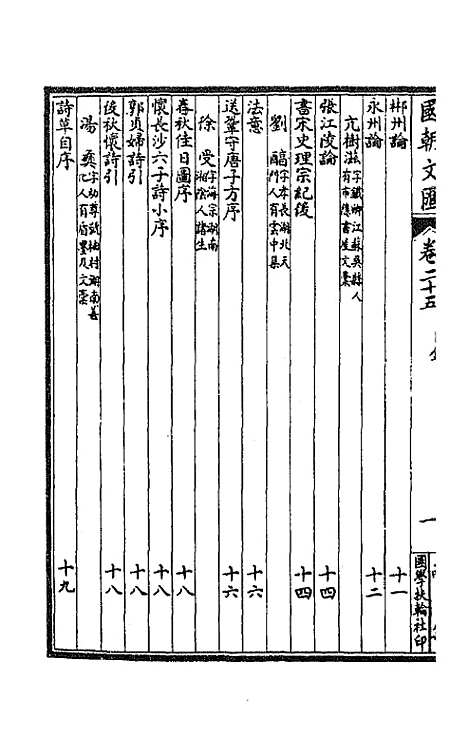 國朝文匯
卷二十五
一
國學扶輪社印
郴州論 十一
永州論 十二
亢樹滋 字鐵卿江蘇吳縣人有市隱書屋文稾
張江陵論 十四
書宋史理宗紀後 十四
劉醇 字孝長湖北天門人有雲中集
法意 十六
送鞏守唐子方序 十六
徐受 字海宗湖南湘陰人諸生
春秋佳日圖序 十八
懷長沙六子詩小序 十八
郭貞婦詩引 十八
後秋懷詩引 十八
湯彝 字幼尊號柚村湖南善化人有盾墨及文稾
詩草自序 十九